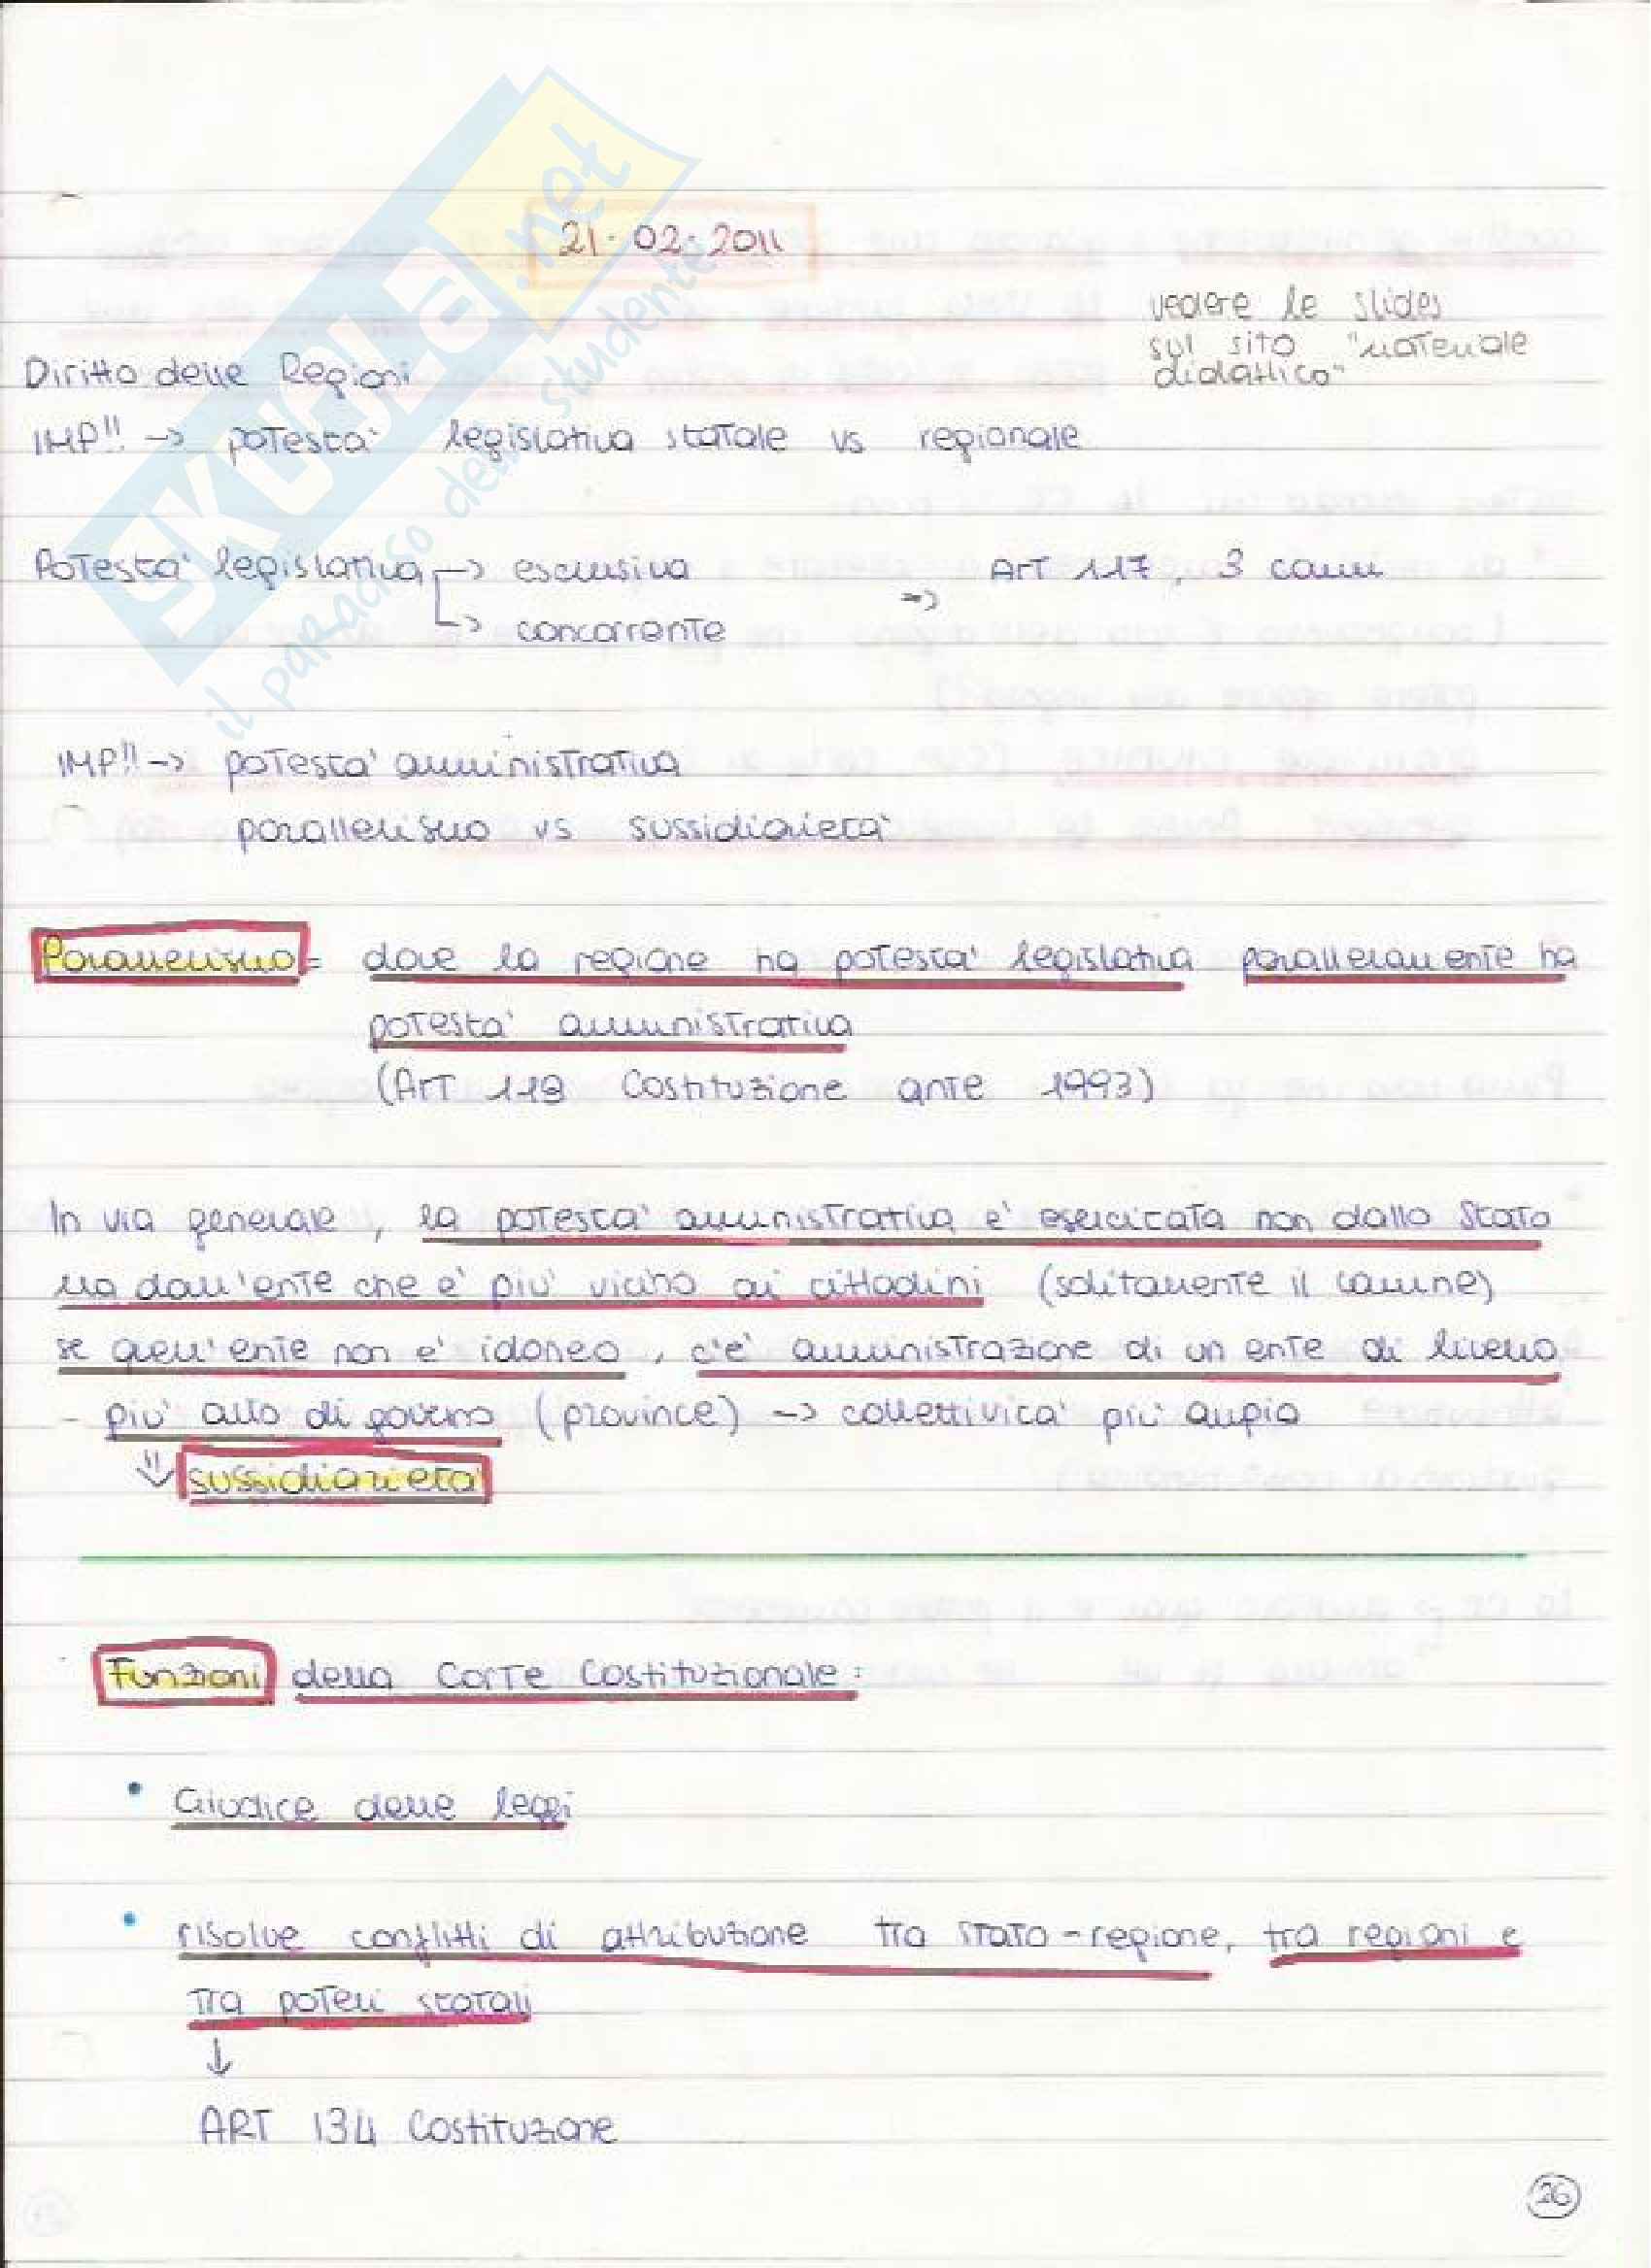 21-02-2011
vedere le slides
sul sito "materiale
didattico"
Diritto delle Regioni
IMP!! -> potestà legislativa statale vs regionale
Potestà legislativa -> esclusiva
-> concorrente
=> Art 117, 3 commi
IMP!! -> potestà amministrativa
parallelismo vs sussidiarietà
Parallelismo = dove la regione ha potestà legislativa parallelamente ha
potestà amministrativa
(Art 118 Costituzione ante 1993)
In via generale, la potestà amministrativa è esercitata non dallo Stato
ma dall'ente che è più vicino ai cittadini (solitamente il comune)
se quell'ente non è idoneo, c'è amministrazione di un ente di livello
- più alto di governo (province) -> collettività più ampia
⇓ sussidiarietà
Funzioni della Corte Costituzionale:
• Giudice delle leggi
• risolve conflitti di attribuzione tra Stato-regione, tra regioni e
tra poteri statali
↓
ART 134 Costituzione
26
SKUOLA.net
il paradiso dello studente